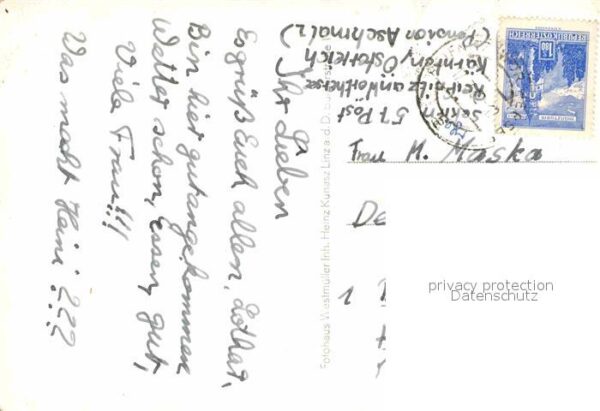 Ihr Lieben
Es grüßt Euch allen, Lothat,
Bin hier gut angekommen
Wetter schön, Essen, gut,
Viele Frau!!!
Was macht Heini ???
(Pension Aschmalz)
Kärnten, Österreich
Reifnitz am Wörthersee
Sekirn
51. Post
Frau M. Maska
De
1
Fotohaus Westmüller Inh. Heinz Kunasz Linz a. d. D.
REPUBLIK ÖSTERREICH
privacy protection
Datenschutz